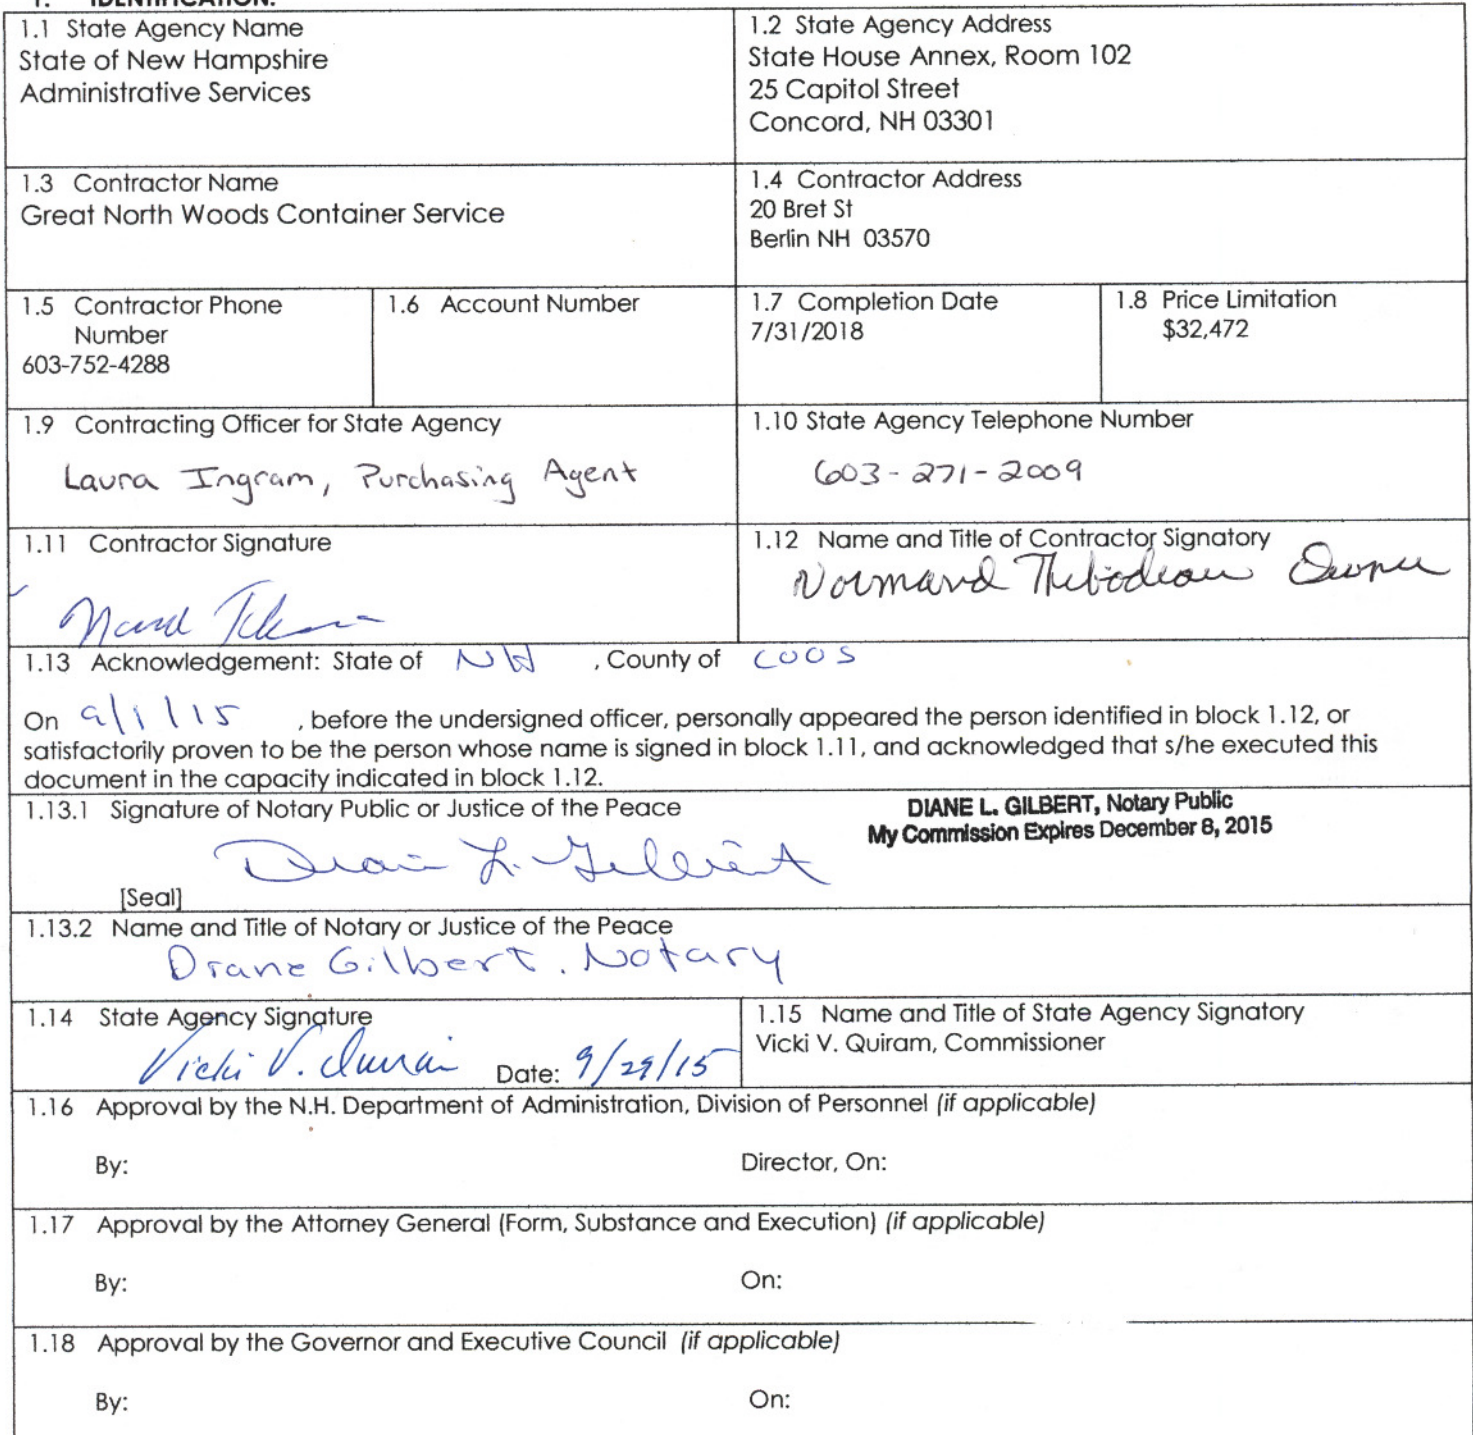 1. IDENTIFICATION.
1.1 State Agency Name
State of New Hampshire
Administrative Services
1.2 State Agency Address
State House Annex, Room 102
25 Capitol Street
Concord, NH 03301
1.3 Contractor Name
Great North Woods Container Service
1.4 Contractor Address
20 Bret St
Berlin NH 03570
1.5 Contractor Phone
Number
603-752-4288
1.6 Account Number
1.7 Completion Date
7/31/2018
1.8 Price Limitation
$32,472
1.9 Contracting Officer for State Agency
Laura Ingram, Purchasing Agent
1.10 State Agency Telephone Number
603-271-2009
1.11 Contractor Signature
1.12 Name and Title of Contractor Signatory
Normand Thibodeau Owner
1.13 Acknowledgement: State of NH , County of COOS
On 9/1/15 , before the undersigned officer, personally appeared the person identified in block 1.12, or
satisfactorily proven to be the person whose name is signed in block 1.11, and acknowledged that s/he executed this
document in the capacity indicated in block 1.12.
1.13.1 Signature of Notary Public or Justice of the Peace
DIANE L. GILBERT, Notary Public
My Commission Expires December 8, 2015
Diane L. Gilbert
[Seal]
1.13.2 Name and Title of Notary or Justice of the Peace
Diane Gilbert, Notary
1.14 State Agency Signature
Vicki V. Quiram Date: 9/29/15
1.15 Name and Title of State Agency Signatory
Vicki V. Quiram, Commissioner
1.16 Approval by the N.H. Department of Administration, Division of Personnel (if applicable)
By: Director, On:
1.17 Approval by the Attorney General (Form, Substance and Execution) (if applicable)
By: On:
1.18 Approval by the Governor and Executive Council (if applicable)
By: On: